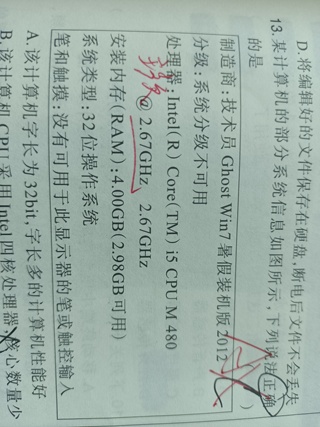 D.将编辑好的文件保存在硬盘,断电后文件不会丢失
13.某计算机的部分系统信息如图所示,下列说法正确
的是 )
制造商:技术员 Ghost Win7 暑假装机版 2012
分级:系统分级不可用
处理器:Intel(R) Core(TM) i5 CPU M 480
@ 2.67GHz 2.67GHz
安装内存(RAM):4.00GB(2.98GB可用)
系统类型:32位操作系统
笔和触摸:没有可用于此显示器的笔或触控输入
A.该计算机字长为32bit,字长多的计算机性能好
B.该计算机CPU采用Intel四核处理器,核心数量少